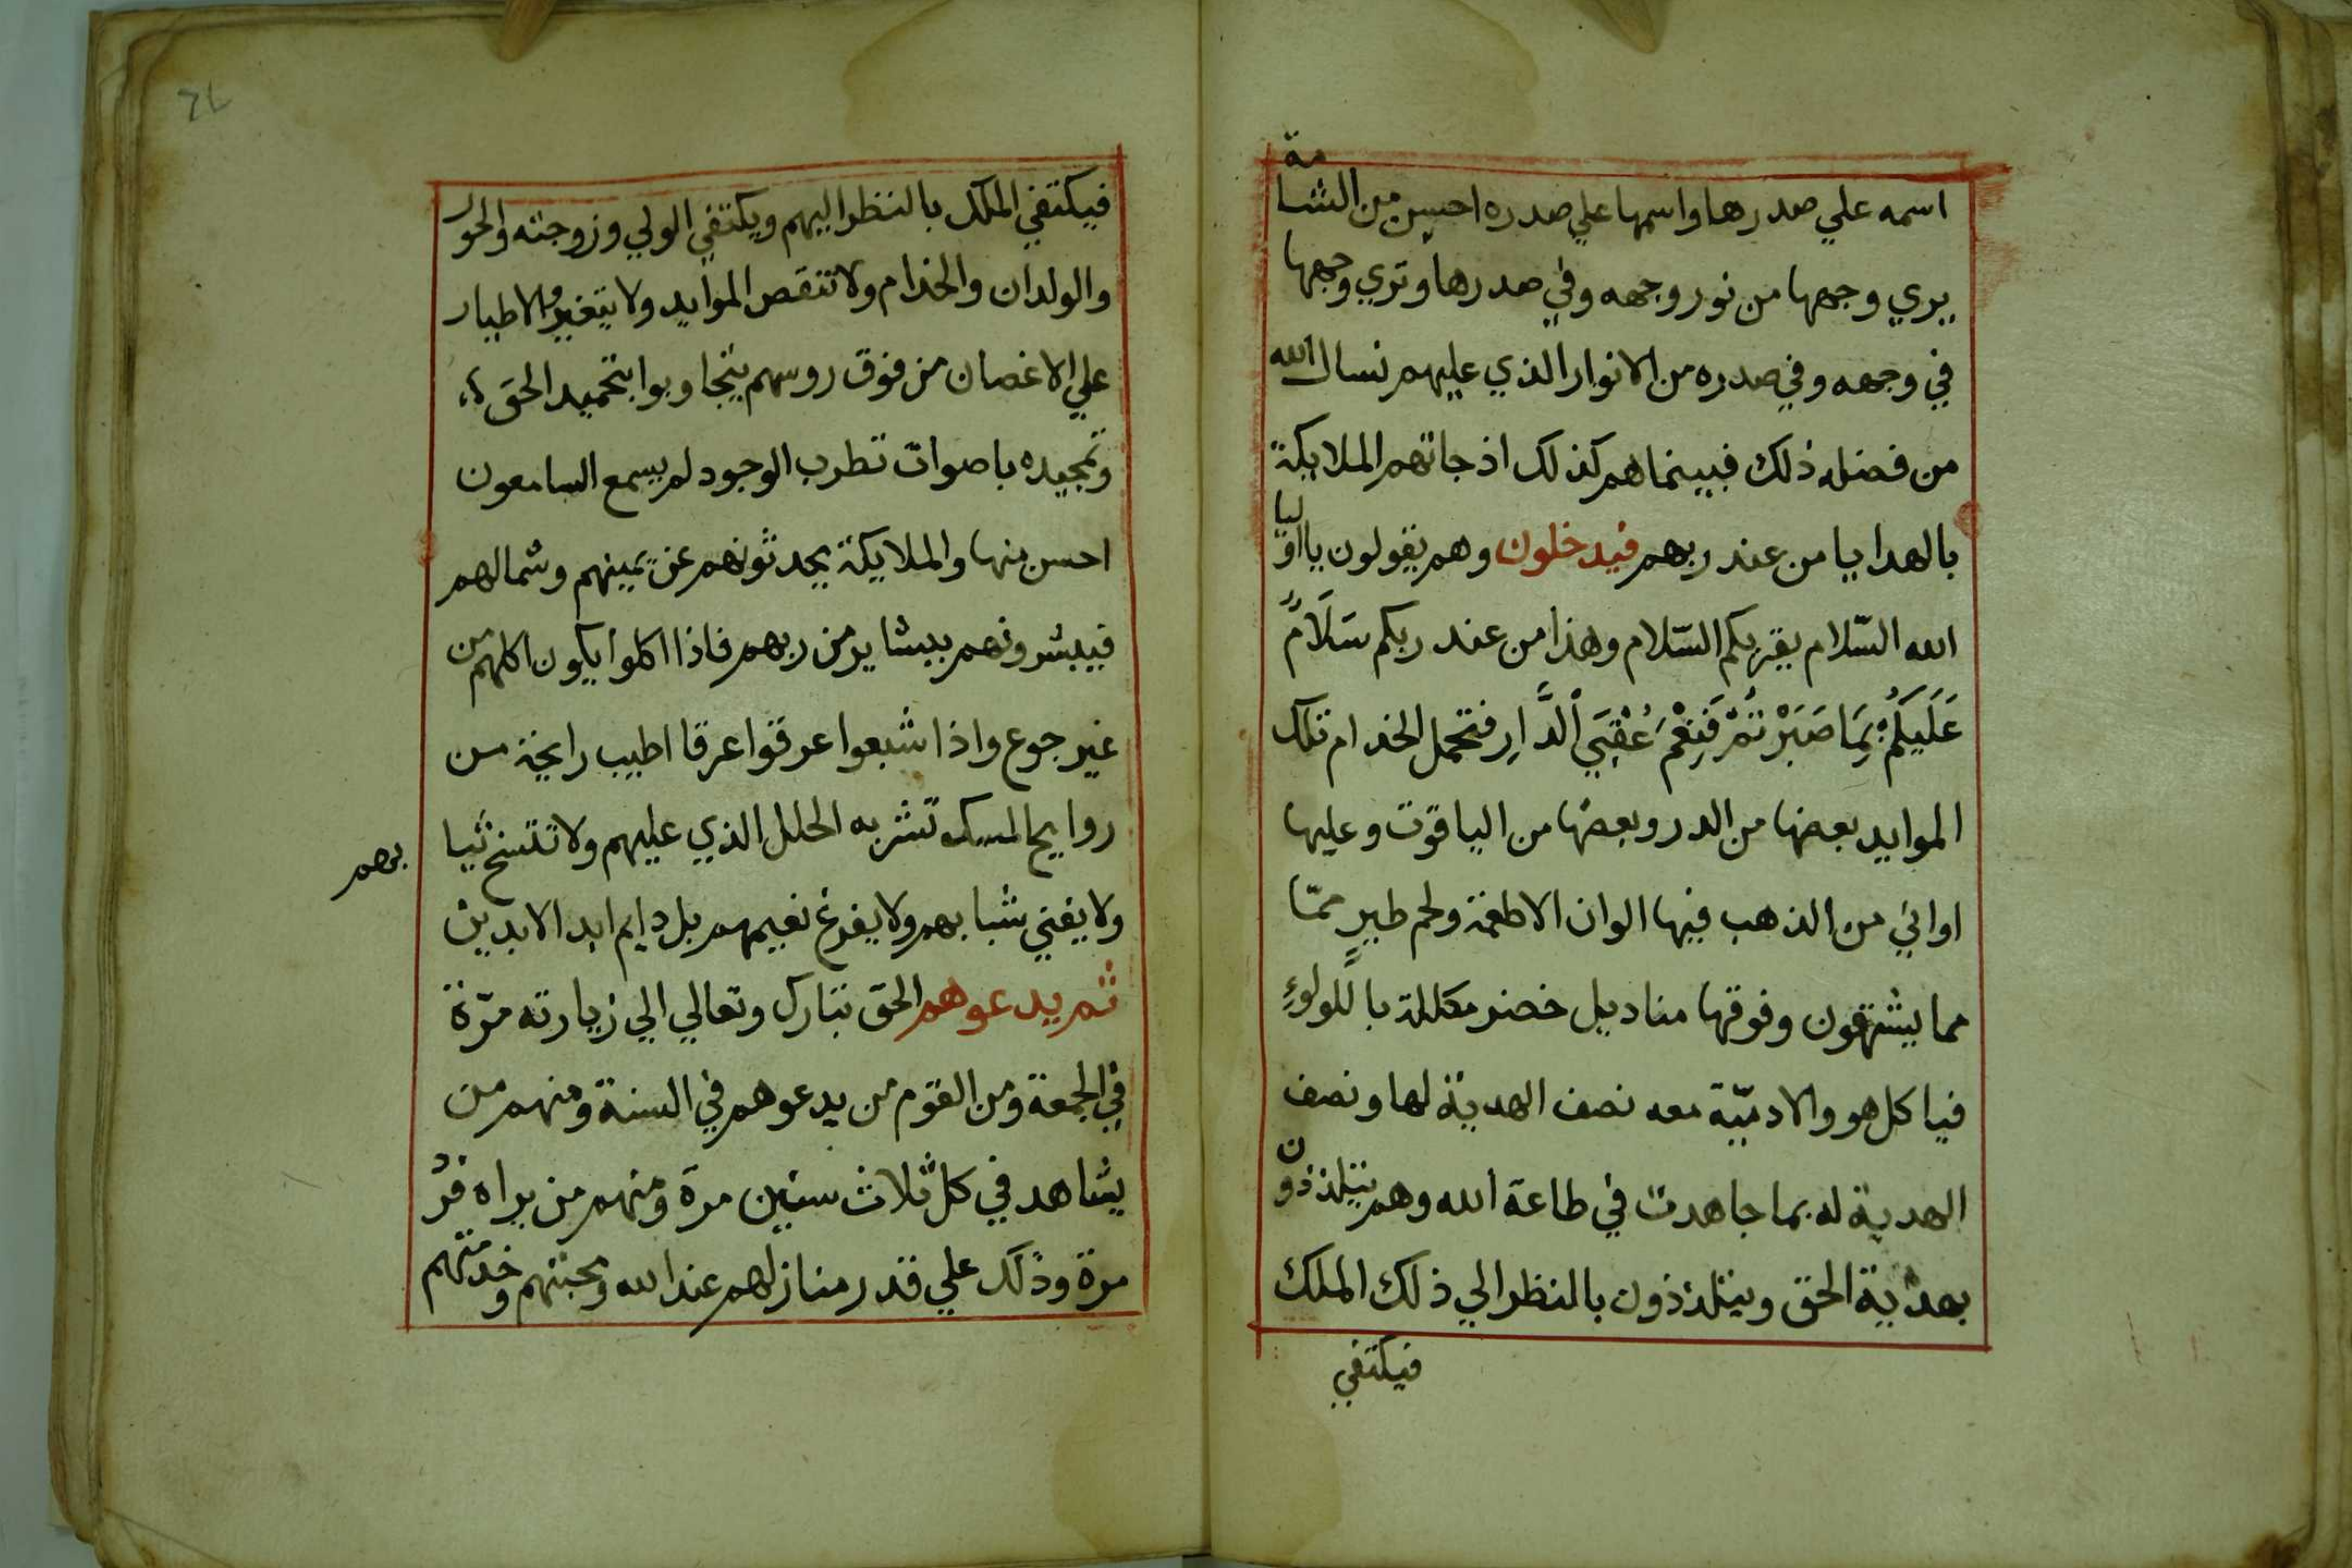 اسمه علي صدرها واسمها علي صدره احسن من الشامة
يري وجهها من نور وجهه وفي صدرها وتري وجهها
في وجهه وفي صدره من الانوار الذي عليهم نسال الله
من فضله ذلك فبينماهم كذلك اذ جاتهم الملايكة
بالهدايا من عند ربهم فيدخلون وهم يقولون يا اوليا
الله السّلام يقريكم السّلام وهذا من عند ربكم سَلَامٌ
عَلَيكُمْ بِمَا صَبَرْتُمْ فَنِعْمَ عُقْبَي الدَّارِ فتحمل الخدام تلك
الموايد بعضها من الدر وبعضها من الياقوت وعليها
اواني من الذهب فيها الوان الاطعمة ولحم طيرٍ ممّا
مما يشتهون وفوقها مناديل خضر مكللة باللولوءِ
فياكل هو والادميّة معه نصف الهدية لها ونصف
الهدية له بما جاهدت في طاعة الله وهم يتلذذون
بهدية الحق ويتلذذون بالنظر الي ذلك الملك
فيكتفي
فيكتفي الملك بالنظر اليهم ويكتفي الولي وزوجته والحور
والولدان والخدام ولا تنقص الموايد ولا يتغيروا والاطيار
علي الاغصان من فوق روسهم يتجاوبوا بتحميد الحق
وتمجيده باصوات تطرب الوجود لم يسمع السامعون
احسن منها والملايكة يحدثونهم عن يمينهم وشمالهم
فيبشرونهم ببشاير من ربهم فاذا اكلوا يكون اكلهم من
غير جوع واذا شبعوا عرقوا عرقا اطيب رايحة من
روايح المسك تشربه الحلل الذي عليهم ولا تتسخ ثيابهم
ولا يفني شبابهم ولا يفرغ نعيمهم بل دايم ابد الابدين
ثم يدعوهم الحق تبارك وتعالي الي زيارته مرّة
في الجمعة ومن القوم من يدعوهم في السنة ومنهم من
يشاهد في كل ثلاث سنين مرة ومنهم من يراه فرُد
مرة وذلك علي قدر منازلهم عند الله ومحبتهم وخدمتهم